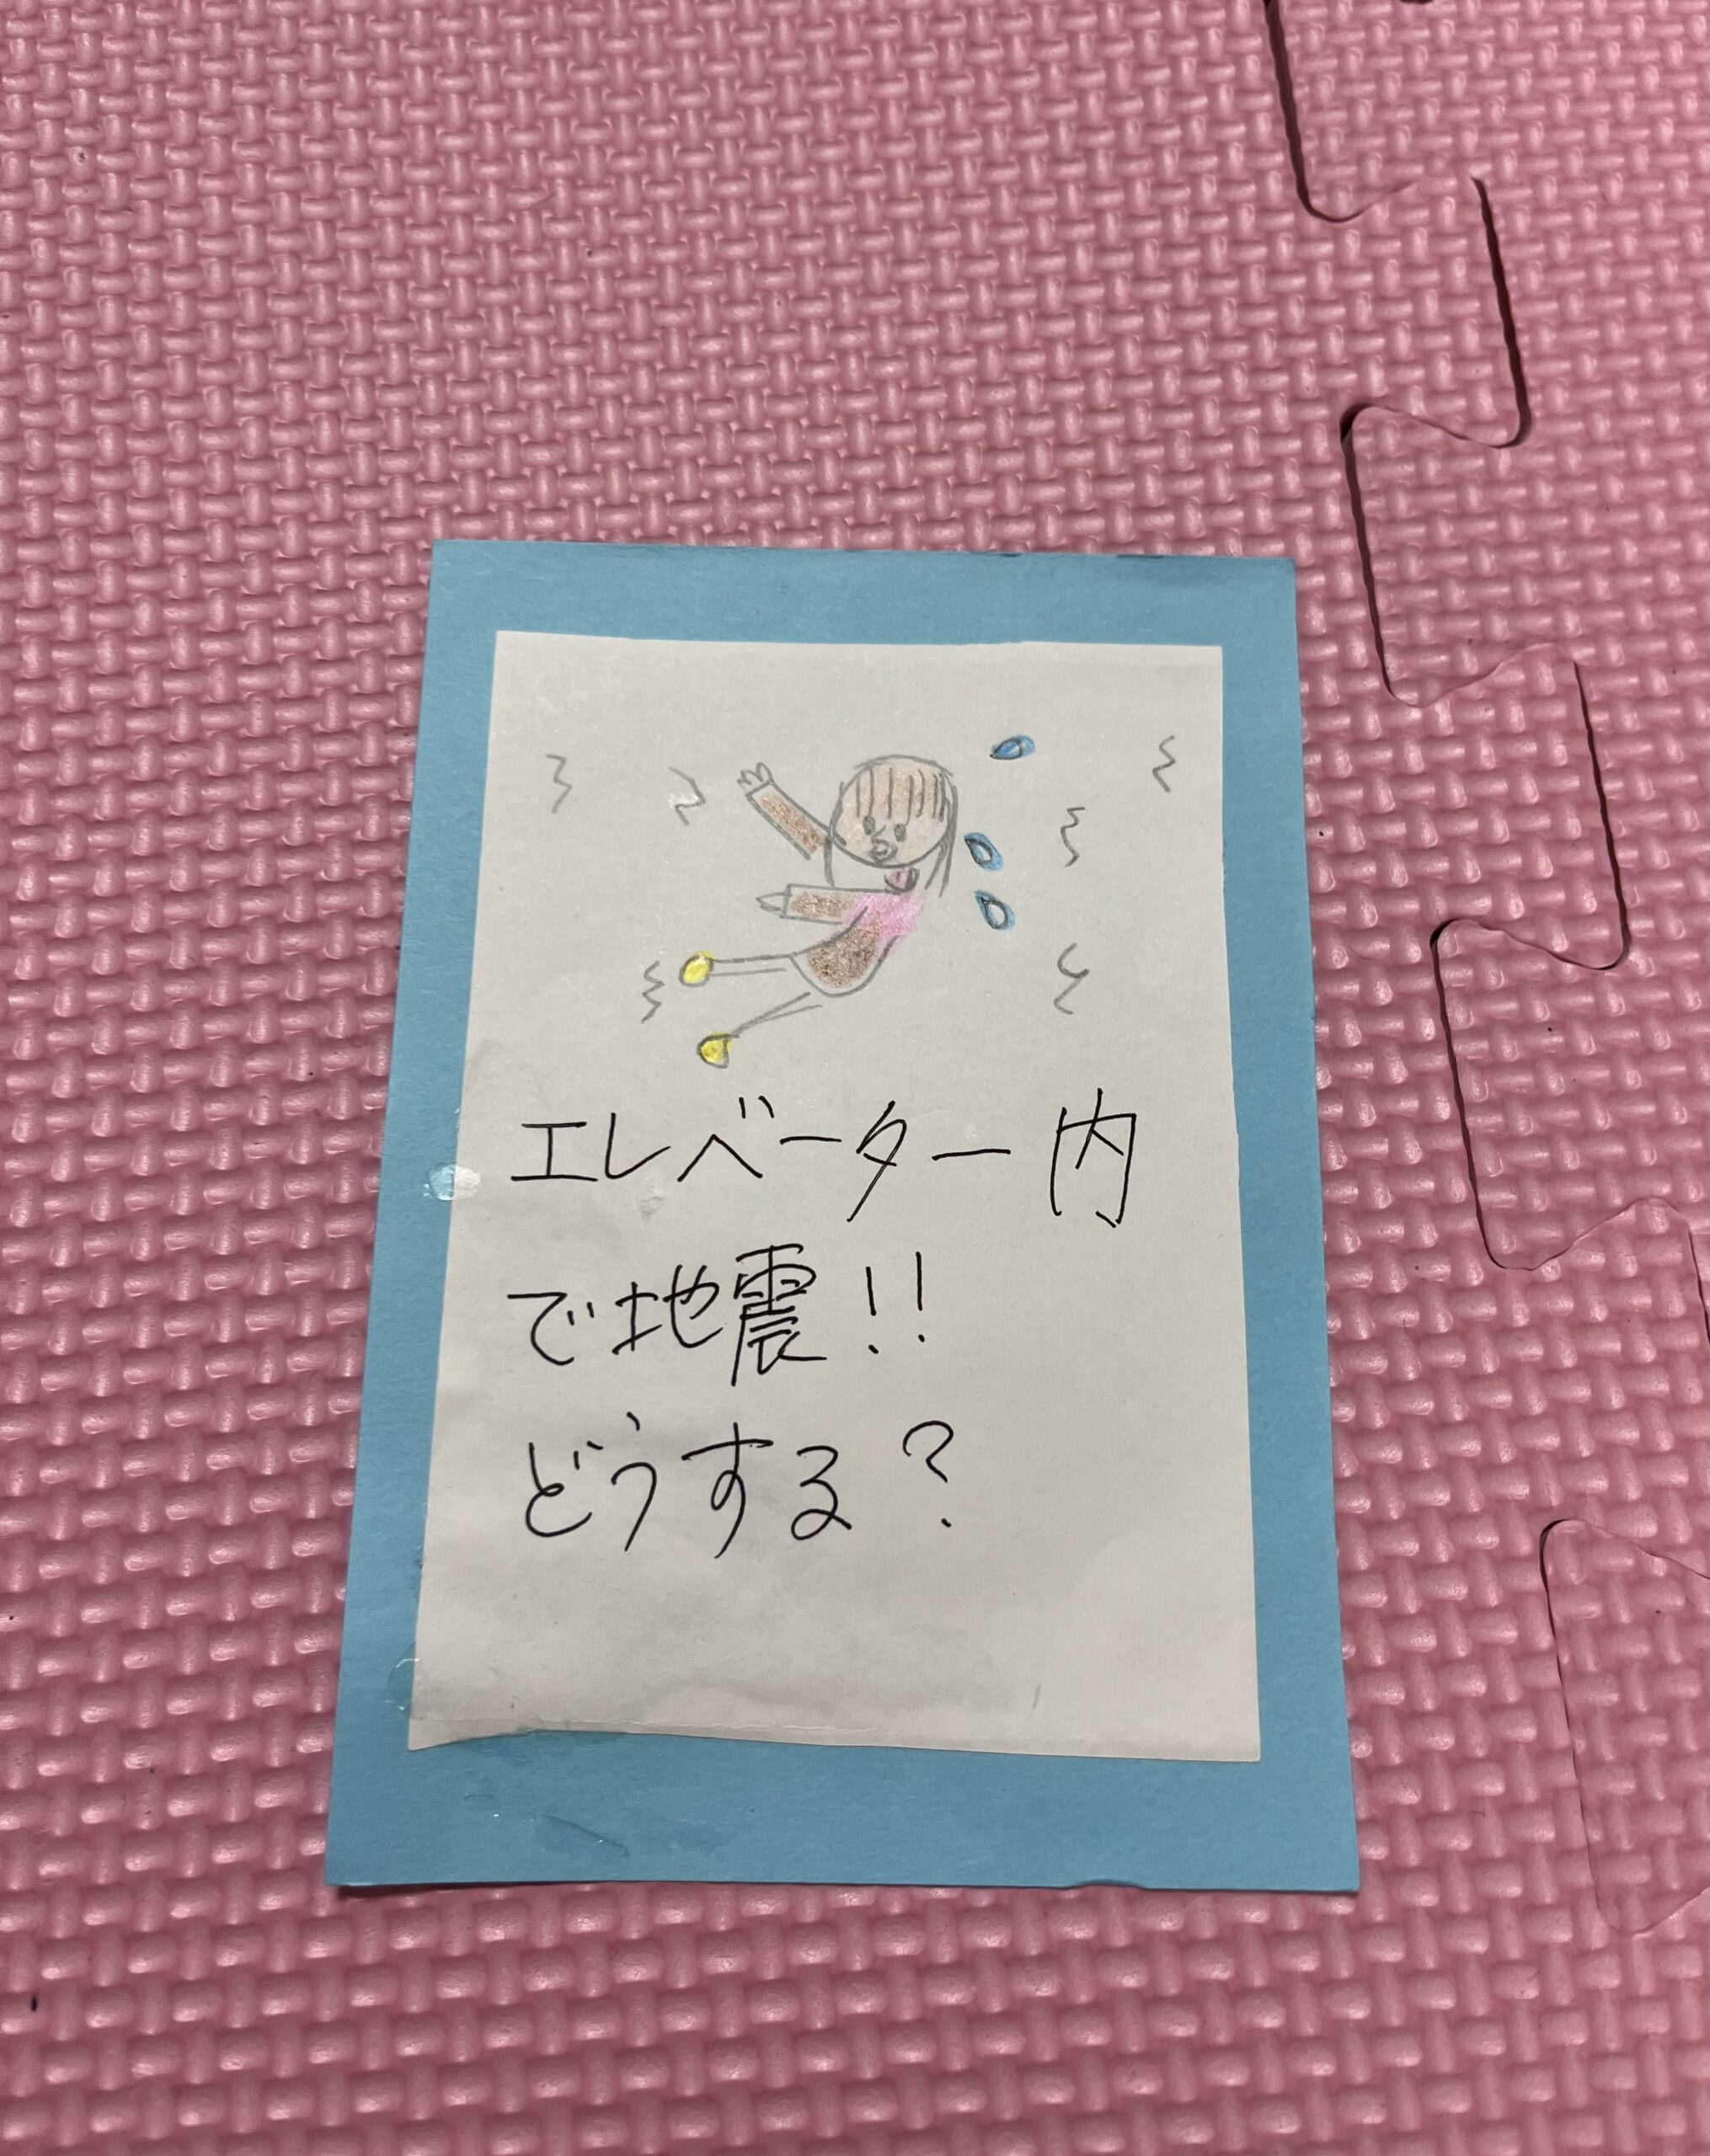 エレベーター内
で地震!!
どうする?